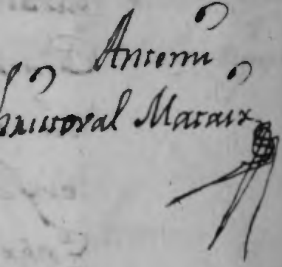 Antemi
hristoval Mataix